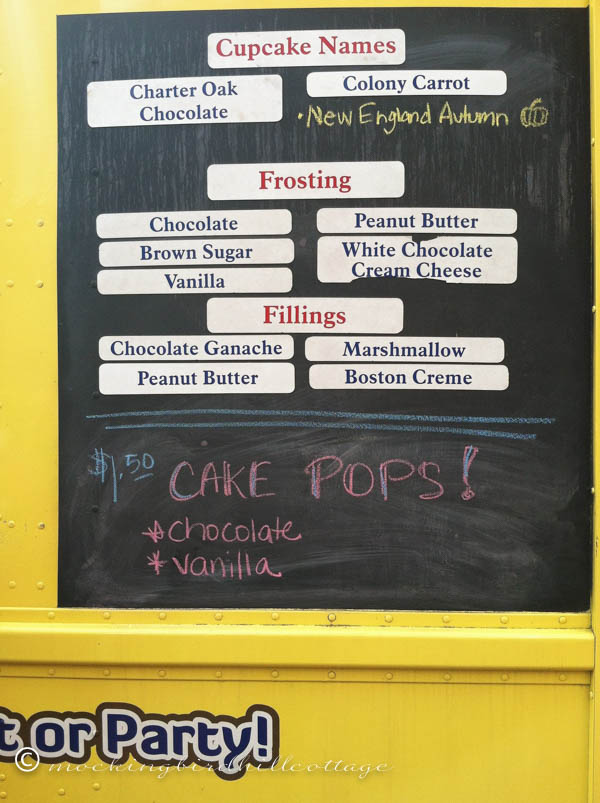 Cupcake Names
Charter Oak
Chocolate
Colony Carrot
• New England Autumn
Frosting
Chocolate
Peanut Butter
Brown Sugar
White Chocolate
Cream Cheese
Vanilla
Fillings
Chocolate Ganache
Marshmallow
Peanut Butter
Boston Creme
$1.50 CAKE POPS!
* chocolate
* vanilla
t or Party!
© mockingbirdhillcottage